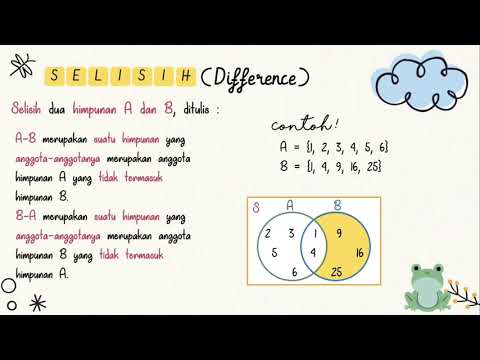 SELISIH (Difference)
Selisih dua himpunan A dan B, ditulis :
A-B merupakan suatu himpunan yang
anggota-anggotanya merupakan anggota
himpunan A yang tidak termasuk
himpunan B.
B-A merupakan suatu himpunan yang
anggota-anggotanya merupakan anggota
himpunan B yang tidak termasuk
himpunan A.
contoh!
A = {1, 2, 3, 4, 5, 6}
B = {1, 4, 9, 16, 25}
S A B
2 3 1 9
5 4 16
6 25